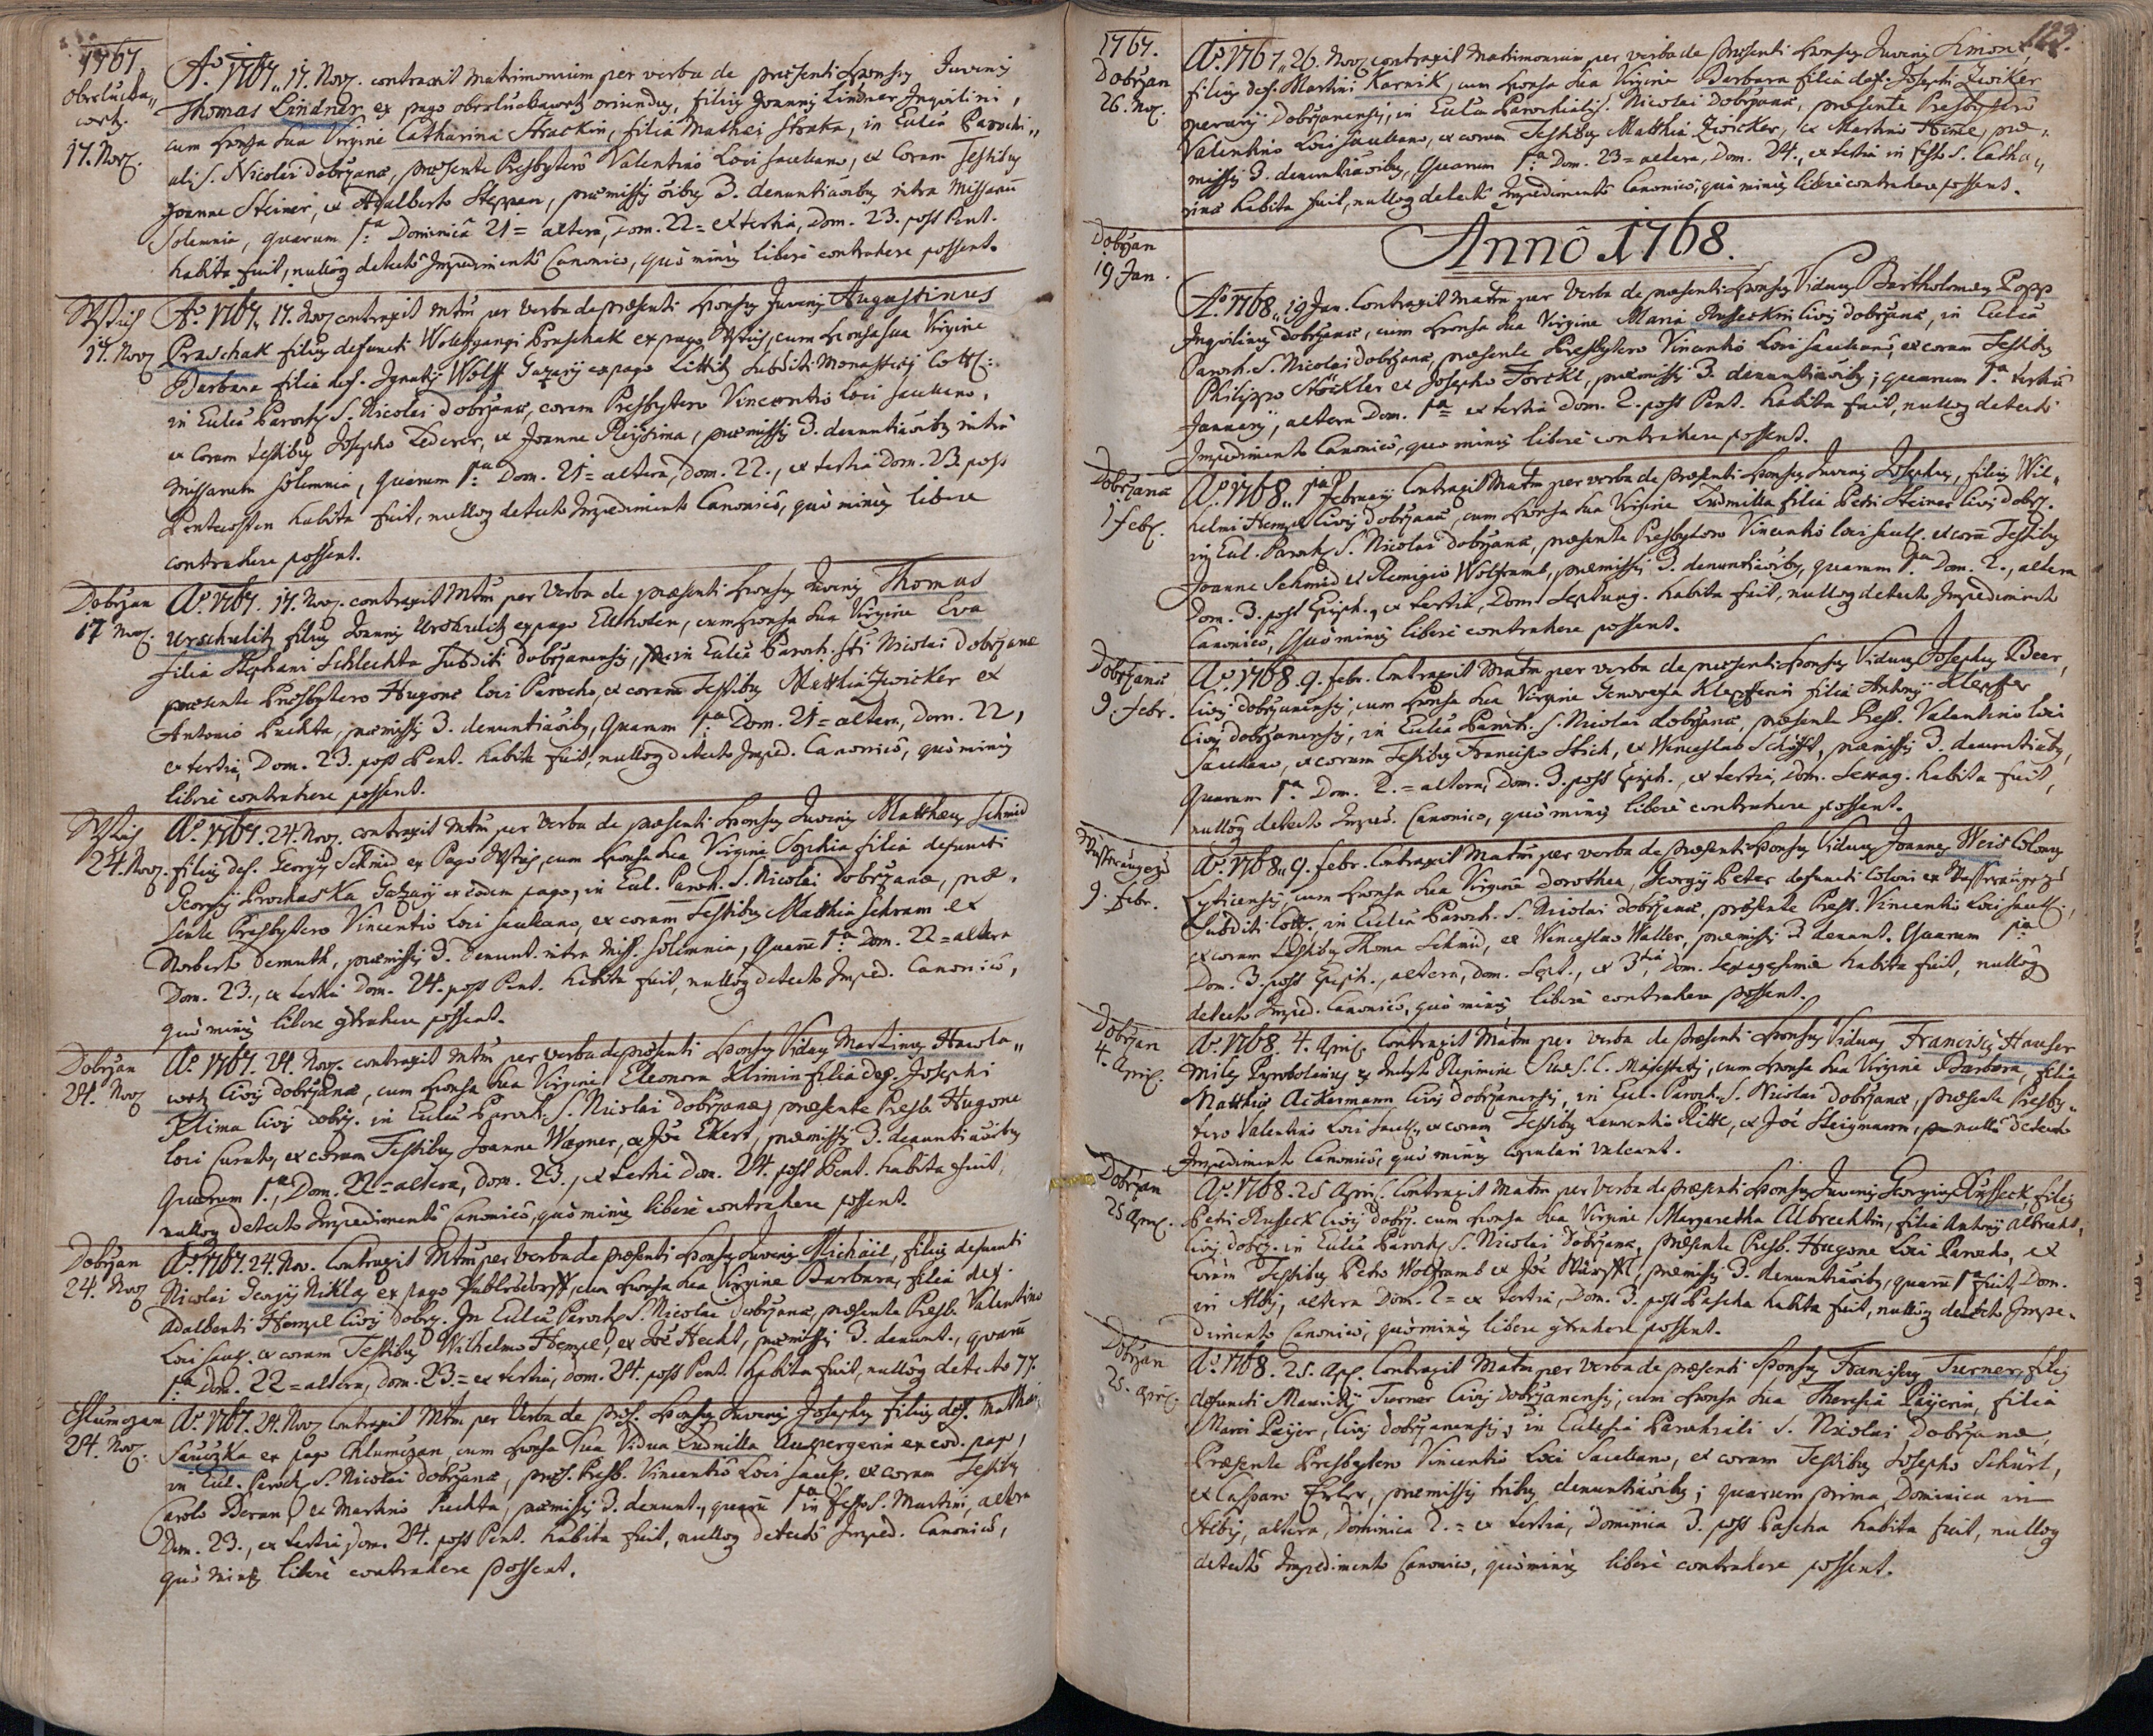 1767.
Obrslucka„
wortz.
17. Nov.
Aº 1767„ 17. Nov. contraxit matrimonium per verba de præsenti Sponsus Juvenis
Thomas Lindner ex pago obrsluckawortz oriundus, filius Joannis Lindner Inquilini,
cum Sponsa sua Virgine Catharina Strackin, filia Mathei Straka, in Ecclia Parochi„
ali S. Nicolai dobrzanæ, præsente Presbytero Valentino Loci sacellano, et Coram Testibus
Joanne Steiner, et Adalberto Steppan, præmissis 3. denuntiaõibus intra Missarum
solemnia, quarum 1ª Dominica 21= altera, Dom. 22= et tertia, Dom. 23. post Pent.
habita fuit, nulloq detecto Impedimento Canonico, quò minus liberè contrahere possent.
17. Nov.
Aº 1767„ 17. Nov contraxit mtm per verba de præsenti Sponsus Juvenis Augustinus
Praschak filius defuncti Wolffgangi Praschak ex pago cum Sponsa sua Virgine
Barbara filia def. Ignatij Wolff ex pago Littitz subditi Monasterij
in Ecclia Paroch S. Nicolai dobrzanæ, coram Presbytero Vincentio Loci sacellano,
et Coram testibus Josepho Lederer, et Joanne præmissis 3. denuntiaõibus intra
Missarum solemnia, quarum 1ª Dom. 21= altera, Dom. 22., et tertia Dom. 23 post
Pentecosten habita fuit, nulloq detecto Impedimento Canonicô, quò minus libere
contrahere possent.
Dobrzan
17 Nov.
Aº 1767. 17. Nov. contraxit Mtm per Verba de præsenti Sponsus Juvenis Thomas
Urschulitz filius Joannis Urschulitz ex pago cum Sponsa sua Virgine Eva
filia Stephani Schlechta subditi dobrzanensis, in Ecclia Paroch. Sti Nicolai Dobrzanæ
præsente Presbytero Hugone loci Parocho, et coram Testibus Matthia Zwicker et
Antonio Puchta, præmissis 3. denuntiaõibus, Quarum 1ª Dom. 21= altera, Dom. 22,
et tertia, Dom. 23. post Pent. habita fuit, nulloq detecto Imped. Canonicô, quò minus
liberè contrahere possent.
24. Nov.
Aº 1767. 24. Nov. contraxit Mtm per Verba de præsenti Sponsus Juvenis Mattheus Schmid
filius def. Georgij Schmid ex Pago cum Sponsa sua Virgine Sophia filia defuncti
Georgij Prochaska ex eodem pago, in Eccl. Paroch. S. Nicolai Dobrzanæ, præ„
sente Presbytero Vincentio Loci sacellano, et coram Testibus Matthia Schram et
Norberto Demuth, præmissis 3. denunt. intra Miss. solemnia, Quarum 1ª Dom. 22= altera
Dom. 23., et tertia Dom. 24. post Pent. habita fuit, nulloq detecto Imped. Canonicô,
quò minus libere gtrahere possent.
Dobrzan
24. Nov
Aº 1767. 24. Nov. contraxit Mtm per verba de præsenti Sponsus Viduus Martinus Hawla„
wetz Civis dobrzanæ, cum Sponsa sua Virgine Eleonora Klimin filia def. Josephi
Klima Civis dobrz. in Ecclia Paroch. S. Nicolai dobrzanæ, præsente Presb. Hugone
loci Curato, et coram Testibus Joanne Wagner, et Joê Ekert, præmissis 3. denuntiaõibus
Quarum 1ª, Dom. 22= altera, dom. 23., et tertia dom. 24. post Pent. habita fuit,
nulloq detecto Impedimentô Canonicô, quò minus liberè contrahere possent.
Dobrzan
24. Nov
Aº 1767. 24. Nov. Contraxit Mtm per verba de præsenti Sponsus Juvenis Michäel, filius defuncti
Nicolai Georgij Niklas ex pago cum Sponsa sua Virgine Barbara, filia def.
Adalberti Hempl Civis dobrz. In Ecclia Paroch S. Nicolai dobrzanæ, præsente Presb. Valentino
Loci sacell. et coram Testibus Wilhelmo Hempl, et Joê Hecht, præmissis 3. denunt., quarum
1ª Dom. 22= altera, dom. 23.= et tertia, dom. 24. post Pent. habita fuit, nulloq detecto
Chlumczan
24. Nov.
Aº 1767. 24. Nov Contraxit Mtm per Verba de præs. Sponsus Juvenis Josephus filius def. Mathei
Sauczka ex pago Chlumczan, cum Sponsa sua Vidua Ludmilla Auspergerin ex eod. pago,
in Eccl. Paroch S. Nicolai dobrzanæ, præs. Presb. Vincentiô Loci sacell. et coram Testibus
Carolo Beran, et Martino Puchta, præmissis 3. denunt., quarum 1ª in festo S. Martini, altera
Dom. 23., et tertia Dom. 24. post Pent. habita fuit, nulloq detectô Imped. Canonicô,
quò minus liberè contrahere possent.
122.
1767.
Dobrzan
26. Nov.
Aº 1767„ 26. Nov contraxit Matrimonium per verba de præsenti Sponsus Juvenis Simon,
filius def. Martini Karnik, cum Sponsa sua Virgine Barbara filia def. Josephi Zwiker
operarij Dobrzanensis, in Ecclia Parochiali S. Nicolai Dobrzanæ, præsente Presbytero
Valentino Loci sacellano, et coram Testibus Matthia Zwicker, et Martino præ„
missis 3. denuntiaõibus, Quarum 1ª Dom. 23= altera, Dom. 24., et tertia in festo S. Catha„
rinæ habita fuit, nulloq detecto Impedimentô Canonicô, quò minus liberè contrahere possent.
Annô 1768.
Dobrzan
19 Jan.
Aº 1768„ 19 Jan. Contraxit Matm per Verba de præsenti Sponsus Viduus Bartholomæus Popp
Inquilinus dobrzanæ, cum Sponsa sua Virgine Maria Russeckin Civis dobrzanæ, in Ecclia
Paroch. S. Nicolai Dobrzanæ, præsente Presbytero Vincentio Loci sacellanô, et coram Testibus
Philippo Stöckler et Josepho Forckl, præmissis 3. denuntiaõibus; quarum 1ª
Januarij, altera Dom. 1ª= et tertia dom. 2. post Pent. habita fuit, nulloq detecto
Impedimento Canonicô, quo minus liberè contrahere possent.
Dobrzanæ
1 feb.
Aº 1768„ 1ma Februarij Contraxit Matm per verba de præsenti Sponsus Juvenis Josephus, filius Wil„
helmi Hempl Civis dobrzanæ, cum Sponsa sua Virgine Ludmilla filia Petri Steiner Civis dobrz.
in Eccl. Paroch S. Nicolai Dobrzanæ, præsente Presbytero Vincentio loci sacell. et corã Testibus
Joanne Schmid et Remigio Wolframb, præmissis 3. denuntiaõibus, quarum 1ª Dom. 2., altera
Dom. 3. post Epiph., et tertia, Dom. Septuag. habita fuit, nulloq detecto Impedimento
Canonicô, Quò minus liberè contrahere possent.
Dobrzanæ
9. febr.
Aº 1768. 9. febr. Contraxit Matm per verba de præsenti Sponsus Viduus Josephus Beer,
Civis dobrzanensis, cum Sponsa sua Virgine Genovefa Klepfferin filia Antonij Klepffer
Civis dobrzanensis, in Ecclia Paroch. S. Nicolai dobrzanæ, præsente Presb. Valentino loci
sacellano, et coram Testibus Francisco Stich, et Wenceslao præmissis 3. denuntiaõibus,
Quarum 1ª Dom. 2.= altera, Dom. 3. post Epiph., et tertia, Dom. Sexag. habita fuit,
nulloq detecto Imped. Canonico, quò minus liberè contrahere possent.
9. febr.
Aº 1768„ 9. febr. Contraxit Matm per verba de præsenti Sponsus Viduus Joannes Weis Colonus
Lyticensis, cum Sponsa sua Virgine Dorothea, Georgij Peter defuncti Coloni ex
Subditi in Ecclia Paroch. S. Nicolai dobrzanæ, præsente Presb. Vincentio Loci sacell.,
et coram Testibus Thoma Schmid, et Wenceslao Waller, præmissis 3 denunt. Quarum 1ma
Dom. 3. post Epiph., altera, dom. Sept., et 3tia, dom. Sexagesimæ habita fuit, nulloq
detecto Imped. Canonicô, quò minus liberè contrahere possent.
Dobrzan
4. April.
Aº 1768. 4. April. Contraxit Matm per verba de præsenti Sponsus Viduus Franciscus Hauser
Miles Pyrobolarius ex Inclyto Regimine Suæ S. C. Majestatis, cum Sponsa sua Virgine Barbara, filia
Matthiæ Ackermann Civis dobrzanensis, in Eccl. Paroch. S. Nicolai dobrzanæ, præsente Presby„
tero Valentino Loci sacell., et coram Testibus Laurentio Rittl, et Joê Steigmann, nullô detecto
Impedimento Canonicô, quò minus copulari valeant.
Dobrzan
25 April.
Aº 1768. 25 April. Contraxit Matm per Verba de præsenti Sponsus Juvenis Georgius Russeck, filius
Petri Russeck Civis dobrz. cum Sponsa sua Virgine Margaretha Albrechtin, filia Antonij Albrecht,
Civis dobrz. in Ecclia Paroch S. Nicolai Dobrzanæ, præsente Presb. Hugone Loci Parocho, et
Coram Testibus Petro Wolframb et Joê præmissis 3. denuntiaõibus, quarum 1ª fuit, Dom.
in Albis, altera Dom. 2= et tertia, Dom. 3. post Pascha habita fuit, nulloq detecto Impe„
dimento Canonicô, quò minus libere gtrahere possent.
Dobrzan
25. April.
Aº 1768. 25. Apr. Contraxit Matm per Verba de præsenti Sponsus Franciscus Turner, filius
defuncti Mauritij Turner Civis Dobrzanensis, cum Sponsa sua Theresia Paÿerin, filia
Marci Paÿer, Civis dobrzanensis, in Ecclesia Parochiali S. Nicolai Dobrzanæ,
Præsente Presbytero Vincentio Loci Sacellano, et coram Testibus Josepho Schürl,
et Casparo præmissis tribus denuntiaõibus; quarum prima Dominica in
Albis, altera, Dominica 2.= et tertia, Dominica 3. post Pascha habita fuit, nulloq
detectô Impedimento Canonico, quò minus liberè contrahere possent.